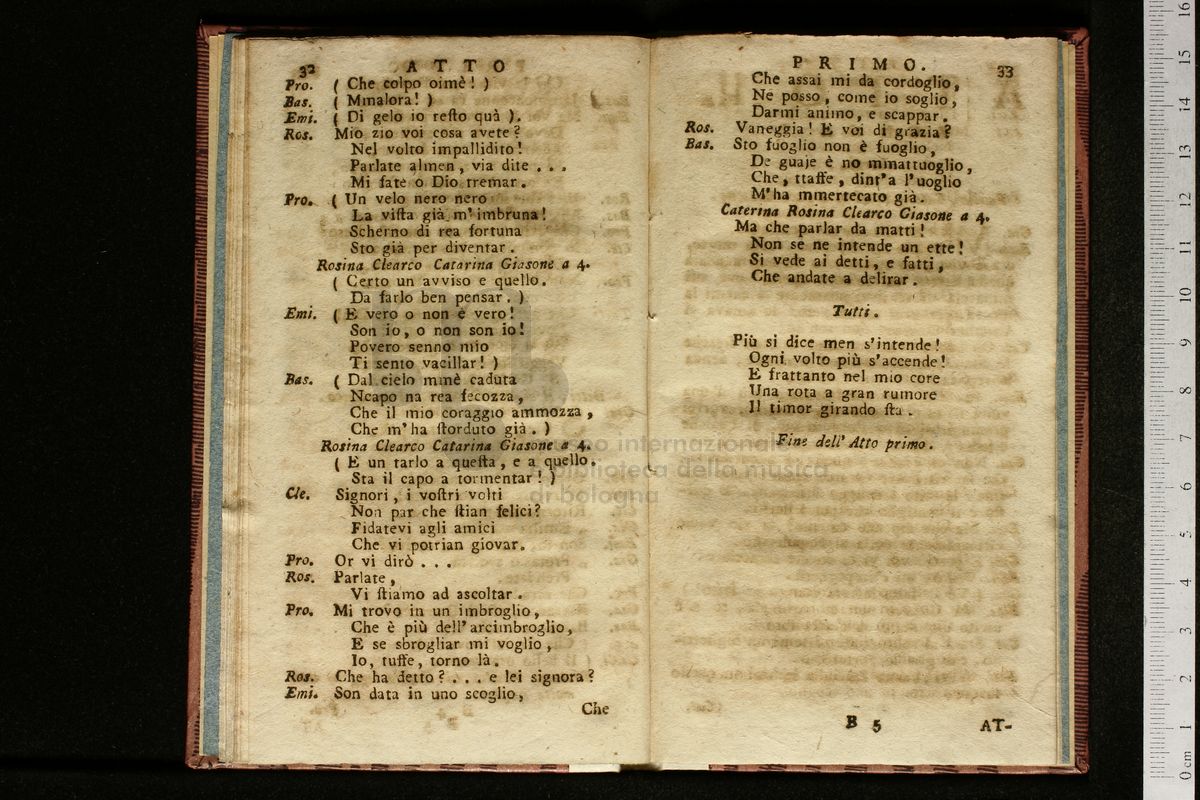 32 ATTO
Pro. ( Che colpo oimè! )
Bas. ( Mmalora! )
Emi. ( Di gelo io reſto quà ).
Ros. Mio zio voi cosa avete?
Nel volto impallidito!
Parlate almen, via dite . . .
Mi fate o Dio tremar.
Pro. ( Un velo nero nero
La viſta già m'imbruna!
Scherno di rea fortuna
Sto già per diventar.
Rosina Clearco Catarina Giasone a 4.
( Certo un avviso e quello.
Da farlo ben pensar. )
Emi. ( E vero o non è vero!
Son io, o non son io!
Povero senno mio
Ti sento vacillar! )
Bas. ( Dal cielo mmè caduta
Ncapo na rea ſecozza,
Che il mio coraggio ammozza,
Che m'ha ſtorduto già. )
Rosina Clearco Catarina Giasone a 4.
( E un tarlo a queſta, e a quello.
Sta il capo a tormentar! )
Cle. Signori, i voſtri volti
Non par che ſtian felici?
Fidatevi agli amici
Che vi potrian giovar.
Pro. Or vi dirò . . .
Ros. Parlate,
Vi ſtiamo ad ascoltar.
Pro. Mi trovo in un imbroglio,
Che è più dell'arcimbroglio,
E se sbrogliar mi voglio,
Io, tuffe, torno là.
Ros. Che ha detto? . . . e lei signora?
Emi. Son data in uno scoglio,
Che
PRIMO. 33
Che assai mi da cordoglio,
Ne posso, come io soglio,
Darmi animo, e scappar.
Ros. Vaneggia! E voi di grazia?
Bas. Sto fuoglio non è fuoglio,
De guaje è no mmattuoglio,
Che, ttaffe, dint'a l'uoglio
M'ha mmertecato già.
Caterina Rosina Clearco Giasone a 4.
Ma che parlar da matti!
Non se ne intende un ette!
Si vede ai detti, e fatti,
Che andate a delirar.
Tutti.
Più si dice men s'intende!
Ogni volto più s'accende!
E frattanto nel mio core
Una rota a gran rumore
Il timor girando ſta.
Fine dell'Atto primo.
B 5 AT-
museo internazionale
e biblioteca della musica
di bologna
0 cm 1 2 3 4 5 6 7 8 9 10 11 12 13 14 15 16